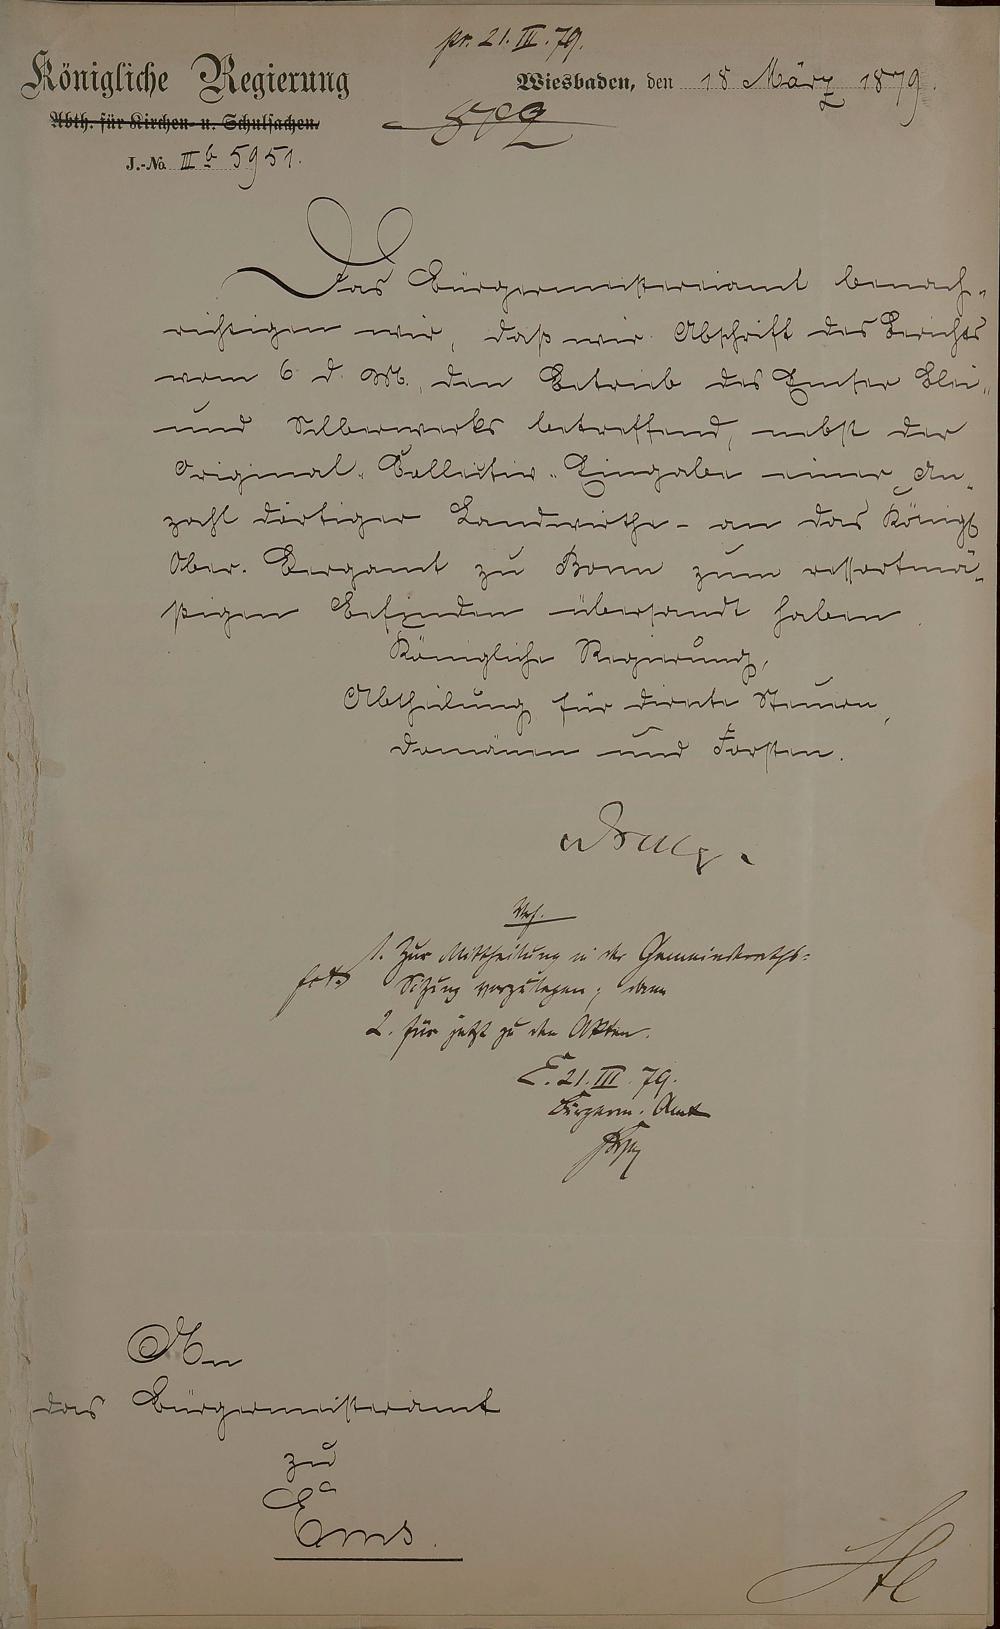 pr. 21. III. 79.
Königliche Regierung
Wiesbaden, den 18 März 1879.
Abth. für Kirchen- u. Schulsachen.
J.-No. IIIb 5951.
Das Bürgermeistereiamt benach-
richtigen wir, daß wir Abschrift des Berichts
vom 6 d. Mt., den Betrieb des Emser Blei-
und Silberwerks betreffend, nebst der
Original-Collectiv-Eingabe einer An-
zahl dortiger Landwirthe - an das Königl
Ober-Bergamt zu Bonn zum ressortmä-
ßigen Befinden übersandt haben
Königliche Regierung,
Abtheilung für directe Steuern,
Domänen und Forsten.
Vrf.
1. Zur Mittheilung in der Gemeinderaths-
Sitzung vorzulegen; dann
2. für jetzt zu den Akten.
E. 21. III. 79.
Bürgerm. Amt
An
das Bürgermeisteramt
zu
Ems.